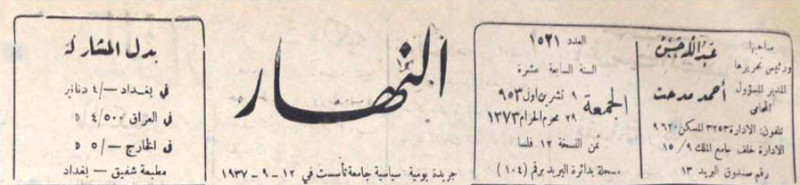 صاحبها
ورئيس تحريرها
عبد الله حسن
المدير المسؤول
المحامي
أحمد مدحت
تلفون: الادارة ٣٢٥٣ المسكن ٩٦٢٠
الادارة خلف جامع الملك ١٥/٩
رقم صندوق البريد ١٣
العدد ١٥٢١
السنة السابعة عشرة
الجمعة
٩ تشرين اول ٩٥٣
٢٩ محرم الحرام ١٣٧٣
ثمن النسخة ١٢ فلسا
مسجلة بدائرة البريد برقم (١٠٤)
النهار
جريدة يومية - سياسية جامعة تأسست في ١٢ - ٩ - ١٩٣٧
بدل المشاركة
في بغداد -/٤ دنانير
في العراق ٤/٥٠٠ »
في الخارج -/٥ »
مطبعة شفيق - بغداد